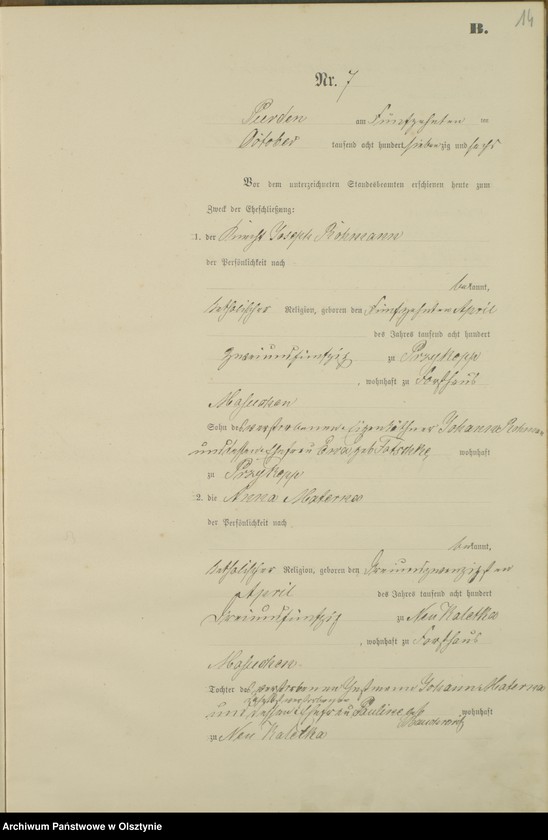 14
B.
Nr. 7
Purden am Fünfzehnten
October tausend acht hundert siebenzig und sechs
Vor dem unterzeichneten Standesbeamten erschienen heute zum
Zweck der Eheschließung:
1. der Knecht Joseph Rohmann
der Persönlichkeit nach
bekannt,
katholischer Religion, geboren den Fünfzehnten April
des Jahres tausend acht hundert
zweiundfünfzig zu Przykopp
, wohnhaft zu Forsthaus
Sohn des verstorbenen Eigenkäthner Johann Rohmann
und dessen Ehefrau geb wohnhaft
zu Przykopp
2. die Anna Materna
der Persönlichkeit nach
bekannt,
katholischer Religion, geboren den Dreiundzwanzigsten
April des Jahres tausend acht hundert
Dreiundfünfzig zu Neu Kaletka
, wohnhaft zu Forsthaus
Tochter des verstorbenen Johann Materna
und dessen Ehefrau Pauline geb wohnhaft
zu Neu Kaletka
Archiwum Państwowe w Olsztynie